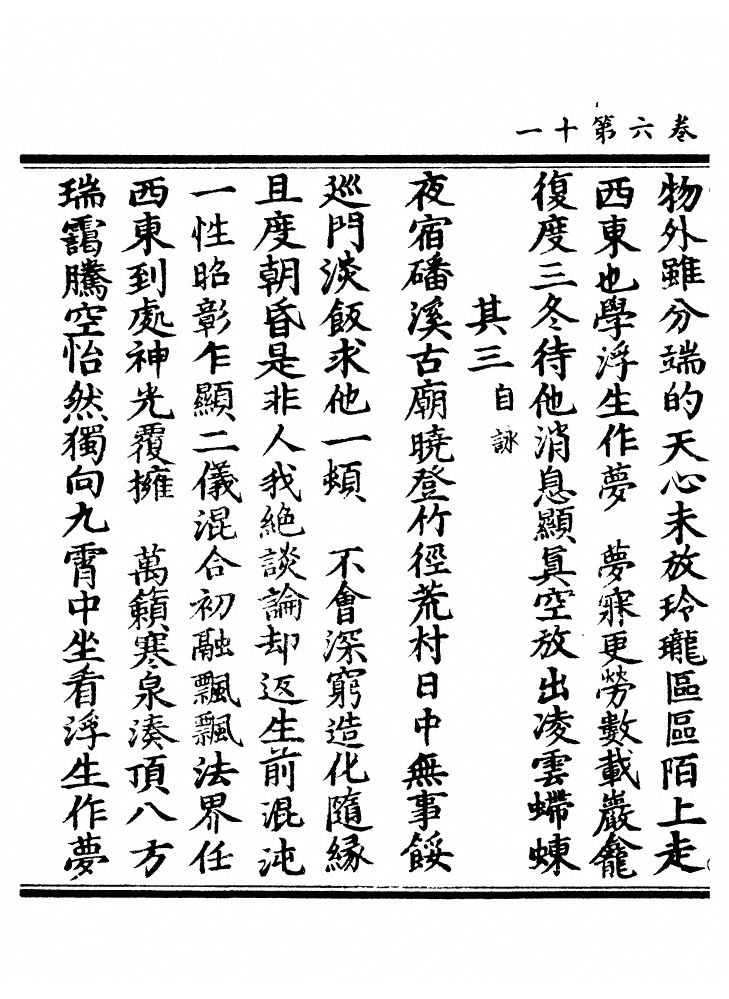 卷六第十一
物外雖分端的天心未放玲瓏區區陌上走
西東也學浮生作夢　夢寐更勞數載巖龕
復度三冬待他消息顯真空放出凌雲䗖蝀
其三自詠
夜宿磻溪古廟曉登竹徑荒村日中無事餒
巡門淡飯求他一頓　不會深窮造化隨緣
且度朝昏是非人我絕談論却返生前混沌
一性昭彰乍顯二儀混合初融飄飄法界任
西東到處神光覆擁　萬籟寒泉湊頂八方
瑞靄騰空怡然獨向九霄中坐看浮生作夢